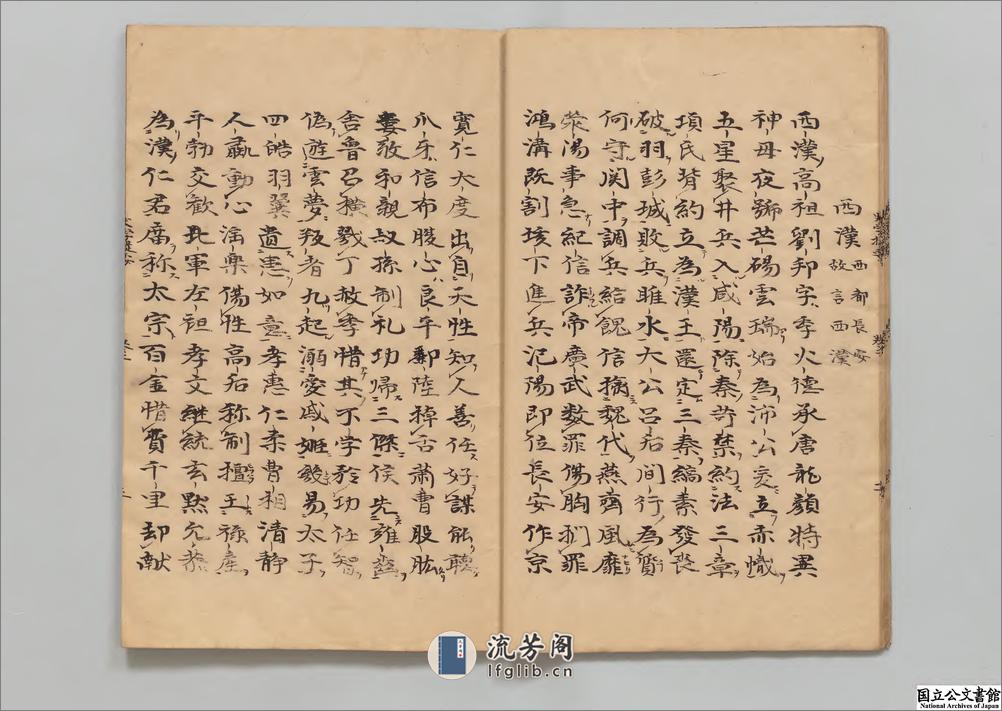 西漢 西都長安
故言西漢
西漢高祖劉邦字季火德承唐龍顏特異
神母夜號芒碭雲瑞始為沛公爰立赤幟
五星聚井兵入咸陽除秦苛禁約法三章
項氏背約立為漢王還定三秦縞素發喪
破羽彭城敗兵睢水太公呂后間行為質
何守関中調兵給餽信擒魏代燕齊風靡
滎陽事急紀信詐帝廣武数罪傷胸捫
鴻溝既割垓下進兵氾陽即位長安作京
寛仁大度出自天性知人善任好謀能聽
爪牙信布腹心良平酈陸掉舌蕭曹股肱
婁敬和親叔孫制礼功帰三傑侯先雍齒
舎魯召横戮丁赦季惜其不学矜功任智
偽遊雲夢叛者九起溺愛戚姬欲易太子
四皓羽翼遺恚如意孝恵仁柔曹相清静
人彘動心淫楽傷性高后称制擅王禄産
平勃交歓北軍左袒孝文継統玄黙允恭
為漢仁君廟称太宗百金惜費千里却献
流芳阁
lfglib.cn
国立公文書館
National Archives of Japan